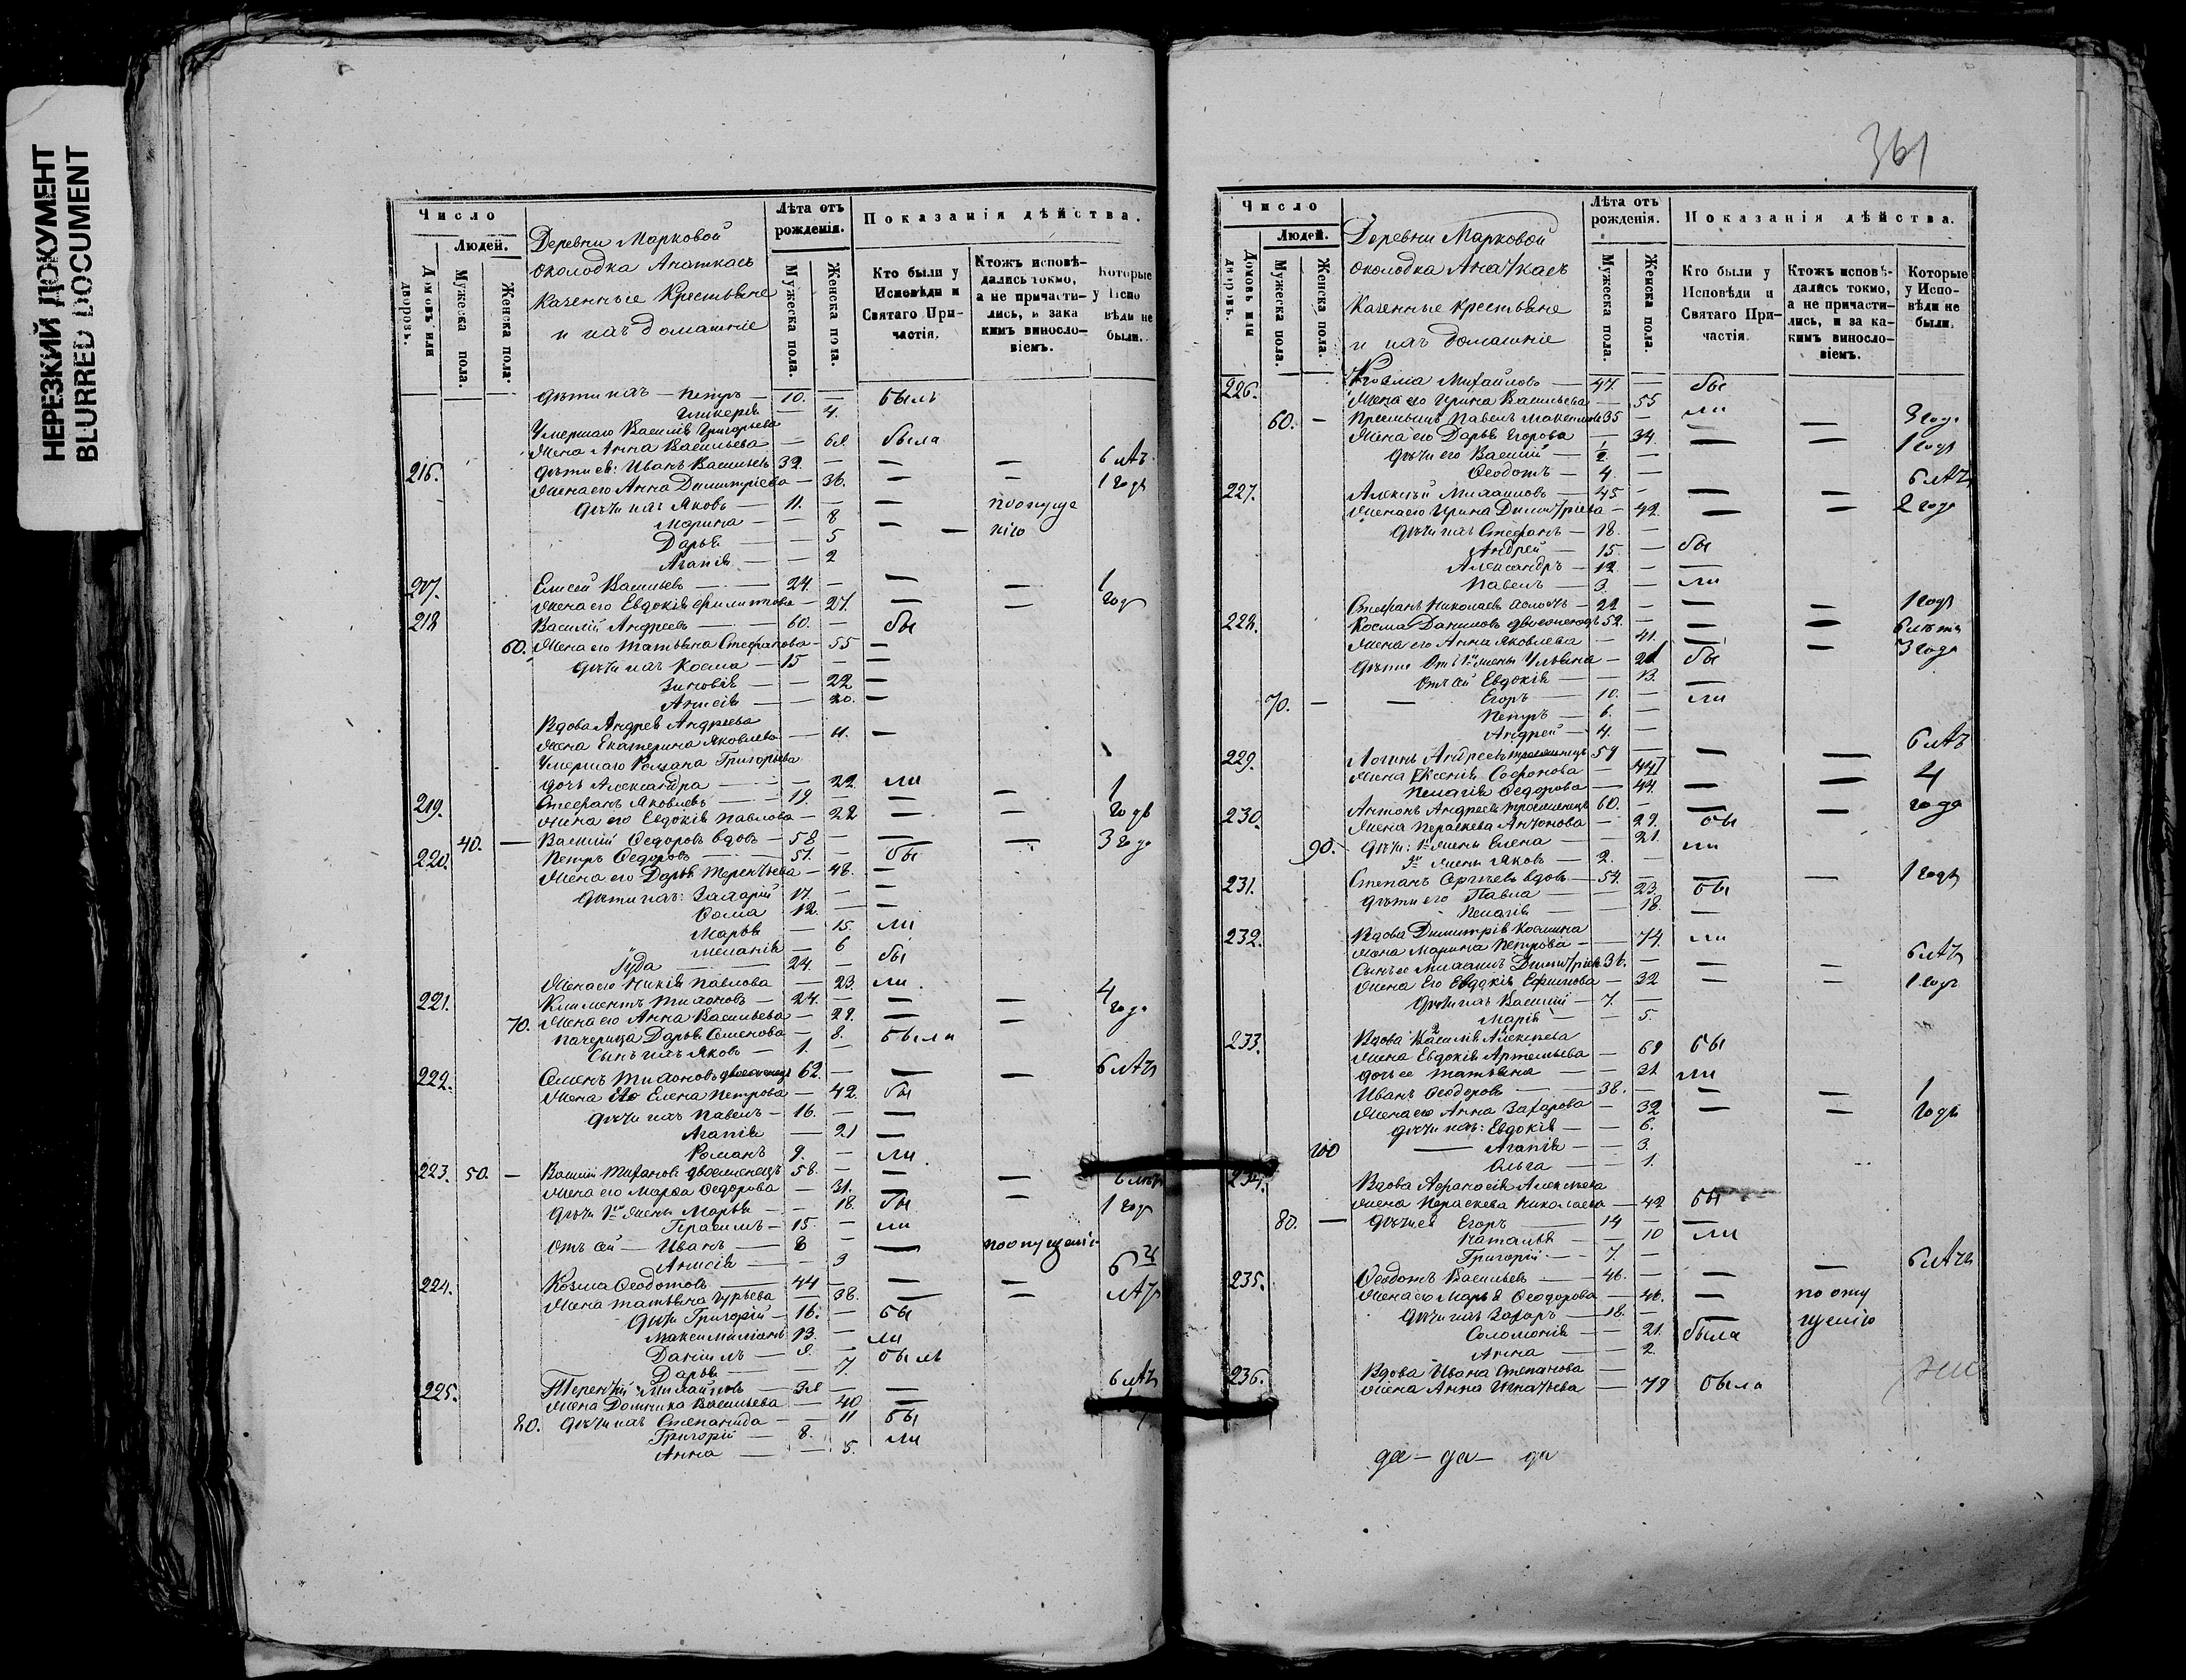 НЕРЕЗКИЙ ДОКУМЕНТ
BLURRED DOCUMENT
Число
Людей.
Домовъ или дворовъ.
Мужеска пола.
Женска пола.
Деревни Марковой
околодка Анаткасъ
казенные крестьяне
и ихъ домашніе
Лѣта отъ рожденія.
Мужеска пола.
Женска пола.
Показанія дѣйства.
Кто были у Исповѣди и Святаго Причастія.
Ктожъ исповѣдались токмо, а не причастились, и за какимъ винословіемъ.
Которые у Исповѣди не были.
Дѣти ихъ — Петръ — 10. — былъ
Гликерія — 4.
Умершаго Василія Григорьева
жена Анна Васильева — былa
216. Дѣти ея: Иванъ Васильевъ 32. — — — 6 лѣтъ
жена его Анна Димитріева — 36. — — 1 годъ
Дѣти ихъ Яковъ — 11. — — по опуще
Марина — — 8 — нію
Дарья — — 5
Агапія — — 2
217. Елисей Васильевъ — 24. — — — 1
жена его Евдокія Филиппова — 27. — — годъ
218 Василій Андреевъ — 60. — бы
60. жена его Татьяна Стефанова — 55 —
Дѣти ихъ Косма — 15 — —
Зиновія — — 22 —
Анисія — — 20. —
Вдова Андрея Андреева
жена Екатерина Яковлева —
Умершаго Романа Григорьева
дочь Александра — — 22. ли
219. Стефанъ Яковлевъ — 19. — — — 1
жена его Евдокія Павлова — 22 — — годъ
40. — Василій Ѳедоровъ вдовъ — 58 — — — 3 года
220. Петръ Ѳедоровъ — 51. — бы
жена его Дарья Терентьева — 48. —
Дѣти ихъ: Захарій 17. — —
Ѳома 12. — —
Марья — 15. ли
Меланія — 6
Іуда — 24. — бы
жена его Павлова — 23. ли
221. Климентъ Тихоновъ — 24. — — — 4
70. жена его Анна Васильева — 22. — — года
падчерица Дарья Семенова — 8. были
Сынъ ихъ Яковъ — 1. —
222. Семенъ Тихоновъ двоеженецъ 62. — — — 6 лѣтъ
жена его Елена Петрова — 42. бы
Дѣти ихъ Павелъ — 16. — —
Агапія — 21 —
Романъ 9. — ли
223. 50. — Василій Тихоновъ двоеженецъ 58. — — —
жена его Марѳа Ѳедорова — 31. — — 1 годъ
Дѣти 1й жены Марья — — 18. бы
Герасимъ — 15. — ли
Отъ сей — Иванъ — 8 — — по опущенію
Анисія — — 3
224. Козма Ѳеодотовъ — 44 — — — 6
жена Татьяна Гурьева — 38. — — лѣтъ
Дѣти Григорій — 16. — бы
Максимиліанъ 13. — ли
Даніилъ — — былъ
Дарья — — 7.
225. Терентій Михайловъ — — — 6 лѣтъ
жена Домника Васильева — 40 —
80. Дѣти ихъ Степанида — — 11 бы
Григорій — 8. ли
Анна — — 5.
361
Число
Людей.
Домовъ или дворовъ.
Мужеска пола.
Женска пола.
Деревни Марковой
околодка Анаткасъ
казенные крестьяне
и ихъ домашніе
Лѣта отъ рожденія.
Мужеска пола.
Женска пола.
Показанія дѣйства.
Кто были у Исповѣди и Святаго Причастія.
Ктожъ исповѣдались токмо, а не причастились, и за какимъ винословіемъ.
Которые у Исповѣди не были.
226. Михайловъ — 47. — бы
жена его Ирина Васильева — 55
60. — Пріемышъ Павелъ 35 — ли — 3 года
жена его Дарья Егорова — 34. — — 1 годъ
Дѣти его Василій —
Ѳеодотъ — 4. —
227. Алексѣй Михаиловъ — 45 — — — 6 лѣтъ
жена его Ирина Димитріева — 42 — — 2 года
Дѣти ихъ Стефанъ — 18. —
Андрей — 15. — бы
Александръ — 12. — —
Павелъ — 3. — ли
Стефанъ Николаевъ — 22 — — — 1 годъ
228. Косма Даниловъ двоеженецъ 52. — — — 6 лѣтъ
жена его Анна Яковлева — 41. — — 3 года
Дѣти Отъ 1й жены Ульяна — 21 бы
Отъ сей Евдокія — — 13. —
70. — — Егоръ — 10. — ли
Петръ — 6. —
Андрей — 4. —
229. Логинъ Андреевъ троеженецъ 59 — — — 6 лѣтъ
жена Ксенія Софонова — — 4
Пелагія Ѳедорова — 44. — —
230. Антонъ Андреевъ троеженецъ 60. — — — года
жена Параскева Антонова — 29. бы
90. Дѣти: 1й жены Елена — 21. ли
жены Яковъ — 2. —
231. Степанъ Сергѣевъ вдовъ — 54. — — — 1 годъ
Дѣти его Павла — 23. бы
Пелагія — — 18. —
232. Вдова Димитрія Космина
жена Марина Петрова — 74. ли
Сынъ ея Михаилъ Димитріевъ 36. — — — 6 лѣтъ
жена его Евдокія Ефимова — 32 — — 1 годъ
Дѣти ихъ Василій — 7. —
Марія — — 5.
233. Вдова Василія Алексѣева
жена Евдокія Артемьева — 69 бы
дочь ея Татьяна — — 31 ли
Иванъ Ѳеодоровъ — 38. — — — 1
жена его Анна Захарова — 32 — — годъ
Дѣти ихъ: Евдокія — — 6.
100 — Агапія — — 3.
Ольга — — 1.
234. Вдова Аѳанасія Алексѣева
жена Параскева Николаева — 42 бы
80. — Дѣти ея Егоръ — 14 — —
Наталья — 10 ли
Григорій — 7. —
235. Ѳеодотъ Васильевъ — 46. — — — 6 лѣтъ
жена его Марья Ѳеодорова — 46. — по опу
Дѣти ихъ Захаръ — 18. — — щенію
Соломонія — — 21. была
Анна — — 2.
236. Вдова Ивана Степанова
жена Анна Игнатьева — 79 была
да — да — да